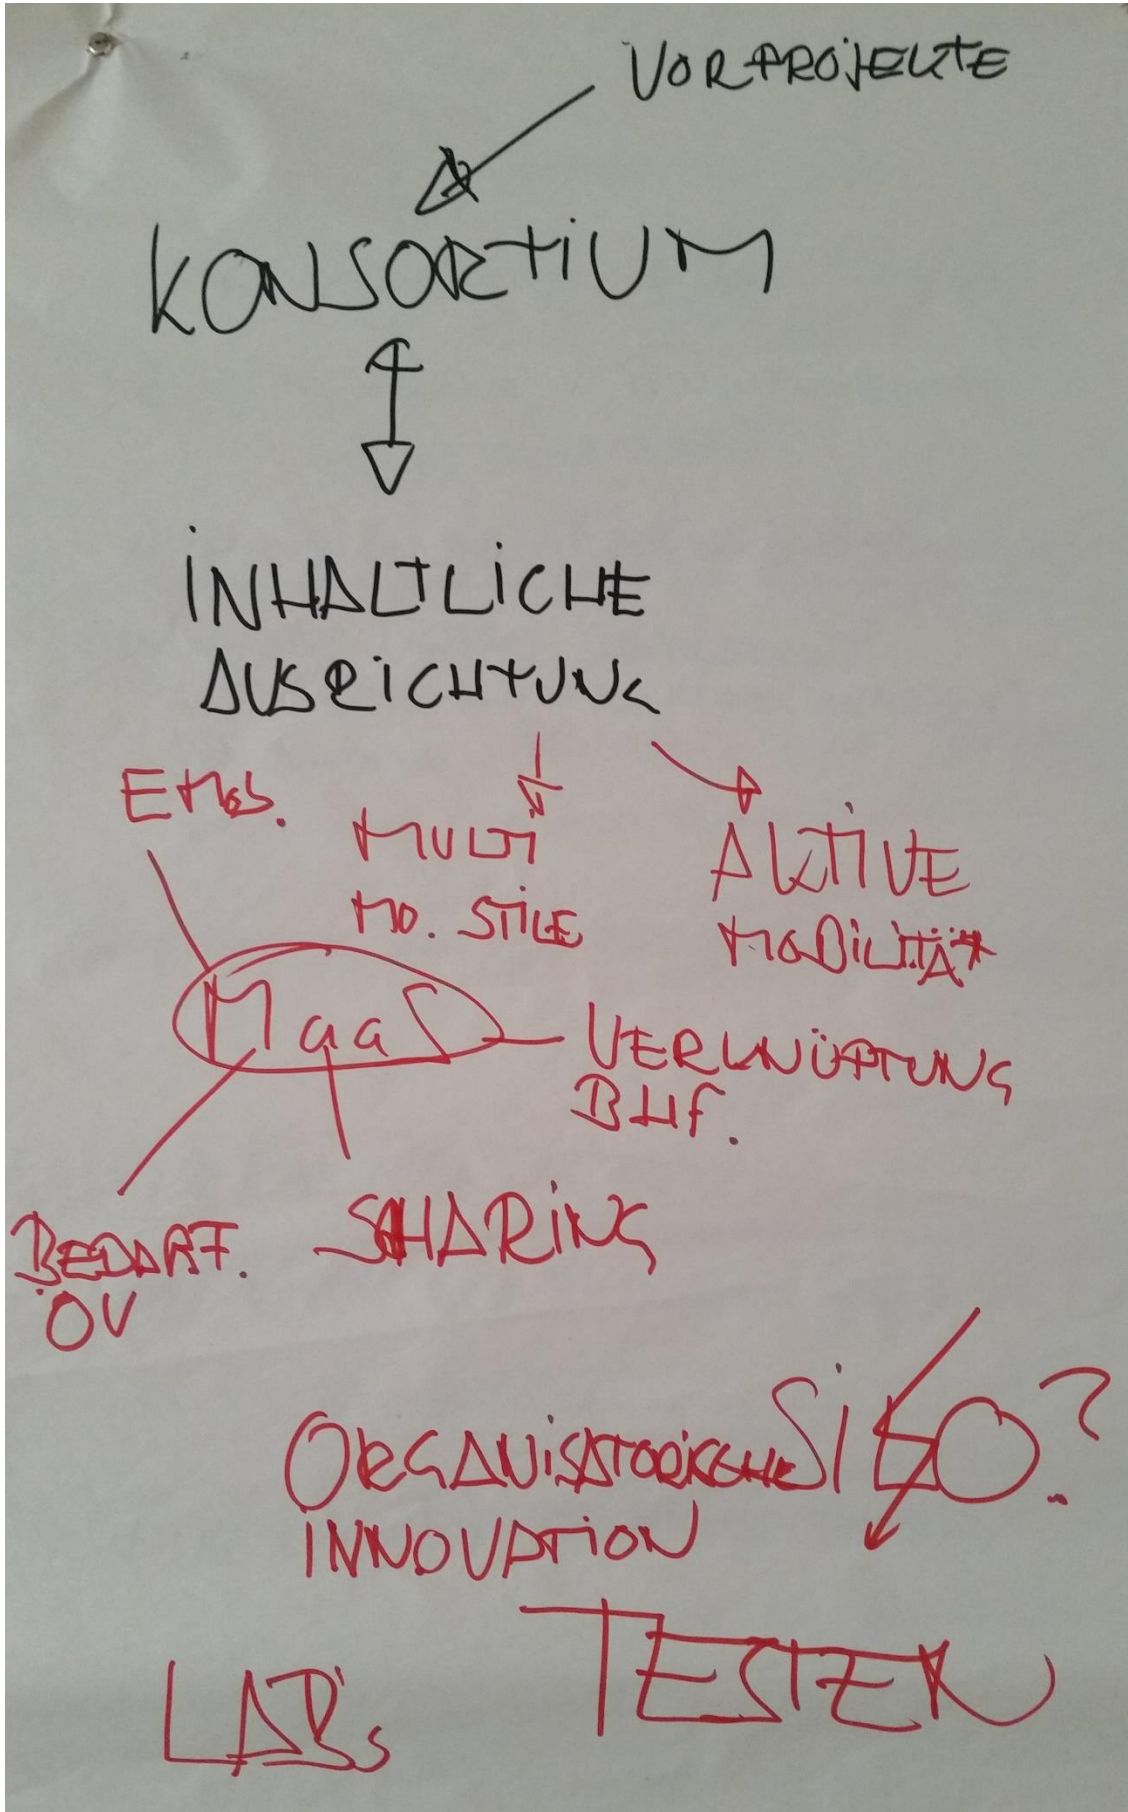 VORPROJEKTE
KONSORTIUM
INHALTLICHE
AUSRICHTUNG
EMob.
MULTI
MO. STILE
AKTIVE
MOBILITÄT
MaaS
VERKNÜPFUNG
BHf.
BEDARF.
ÖV
SHARING
ORGANISATORISCHE
INNOVATION
?
TESTEN
LABs